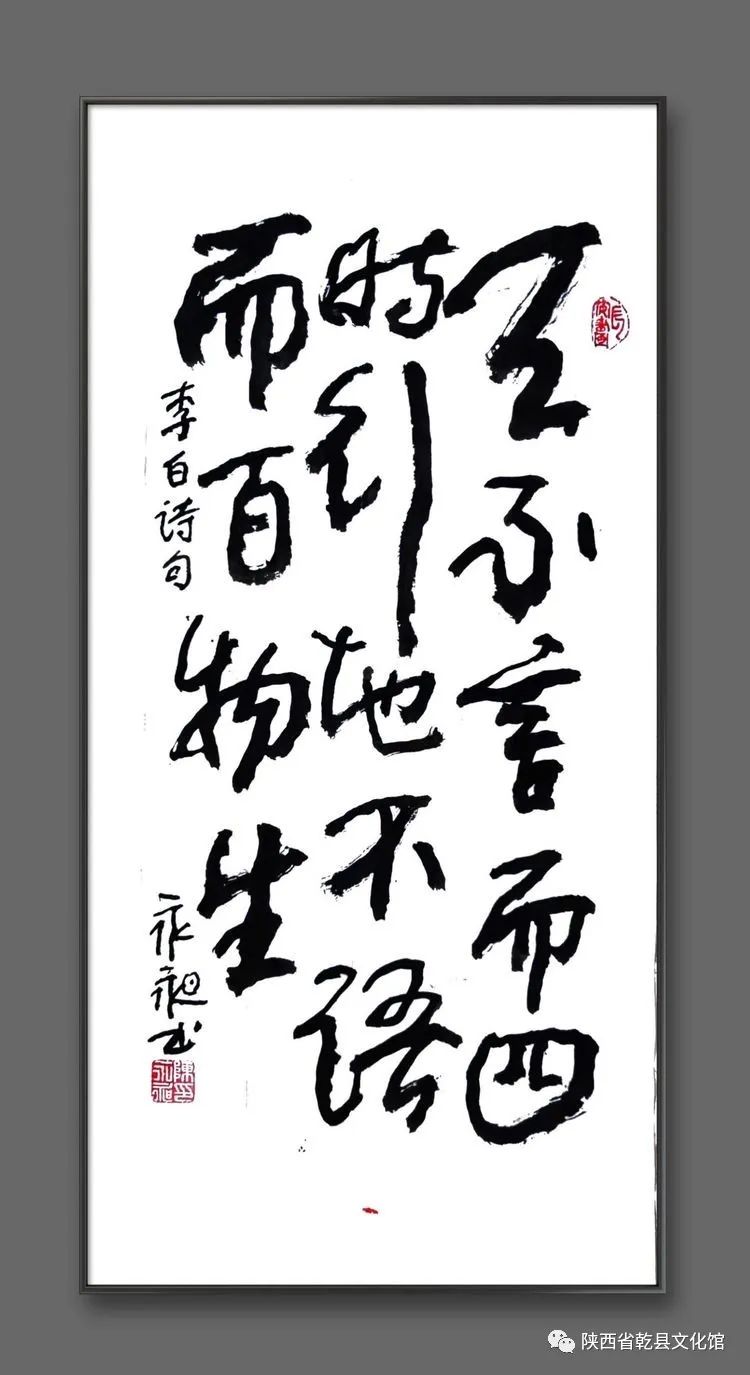 天不言而四
時行地不语
而百物生
李白诗句
永昶书
陳印永昶
陕西省乾县文化馆